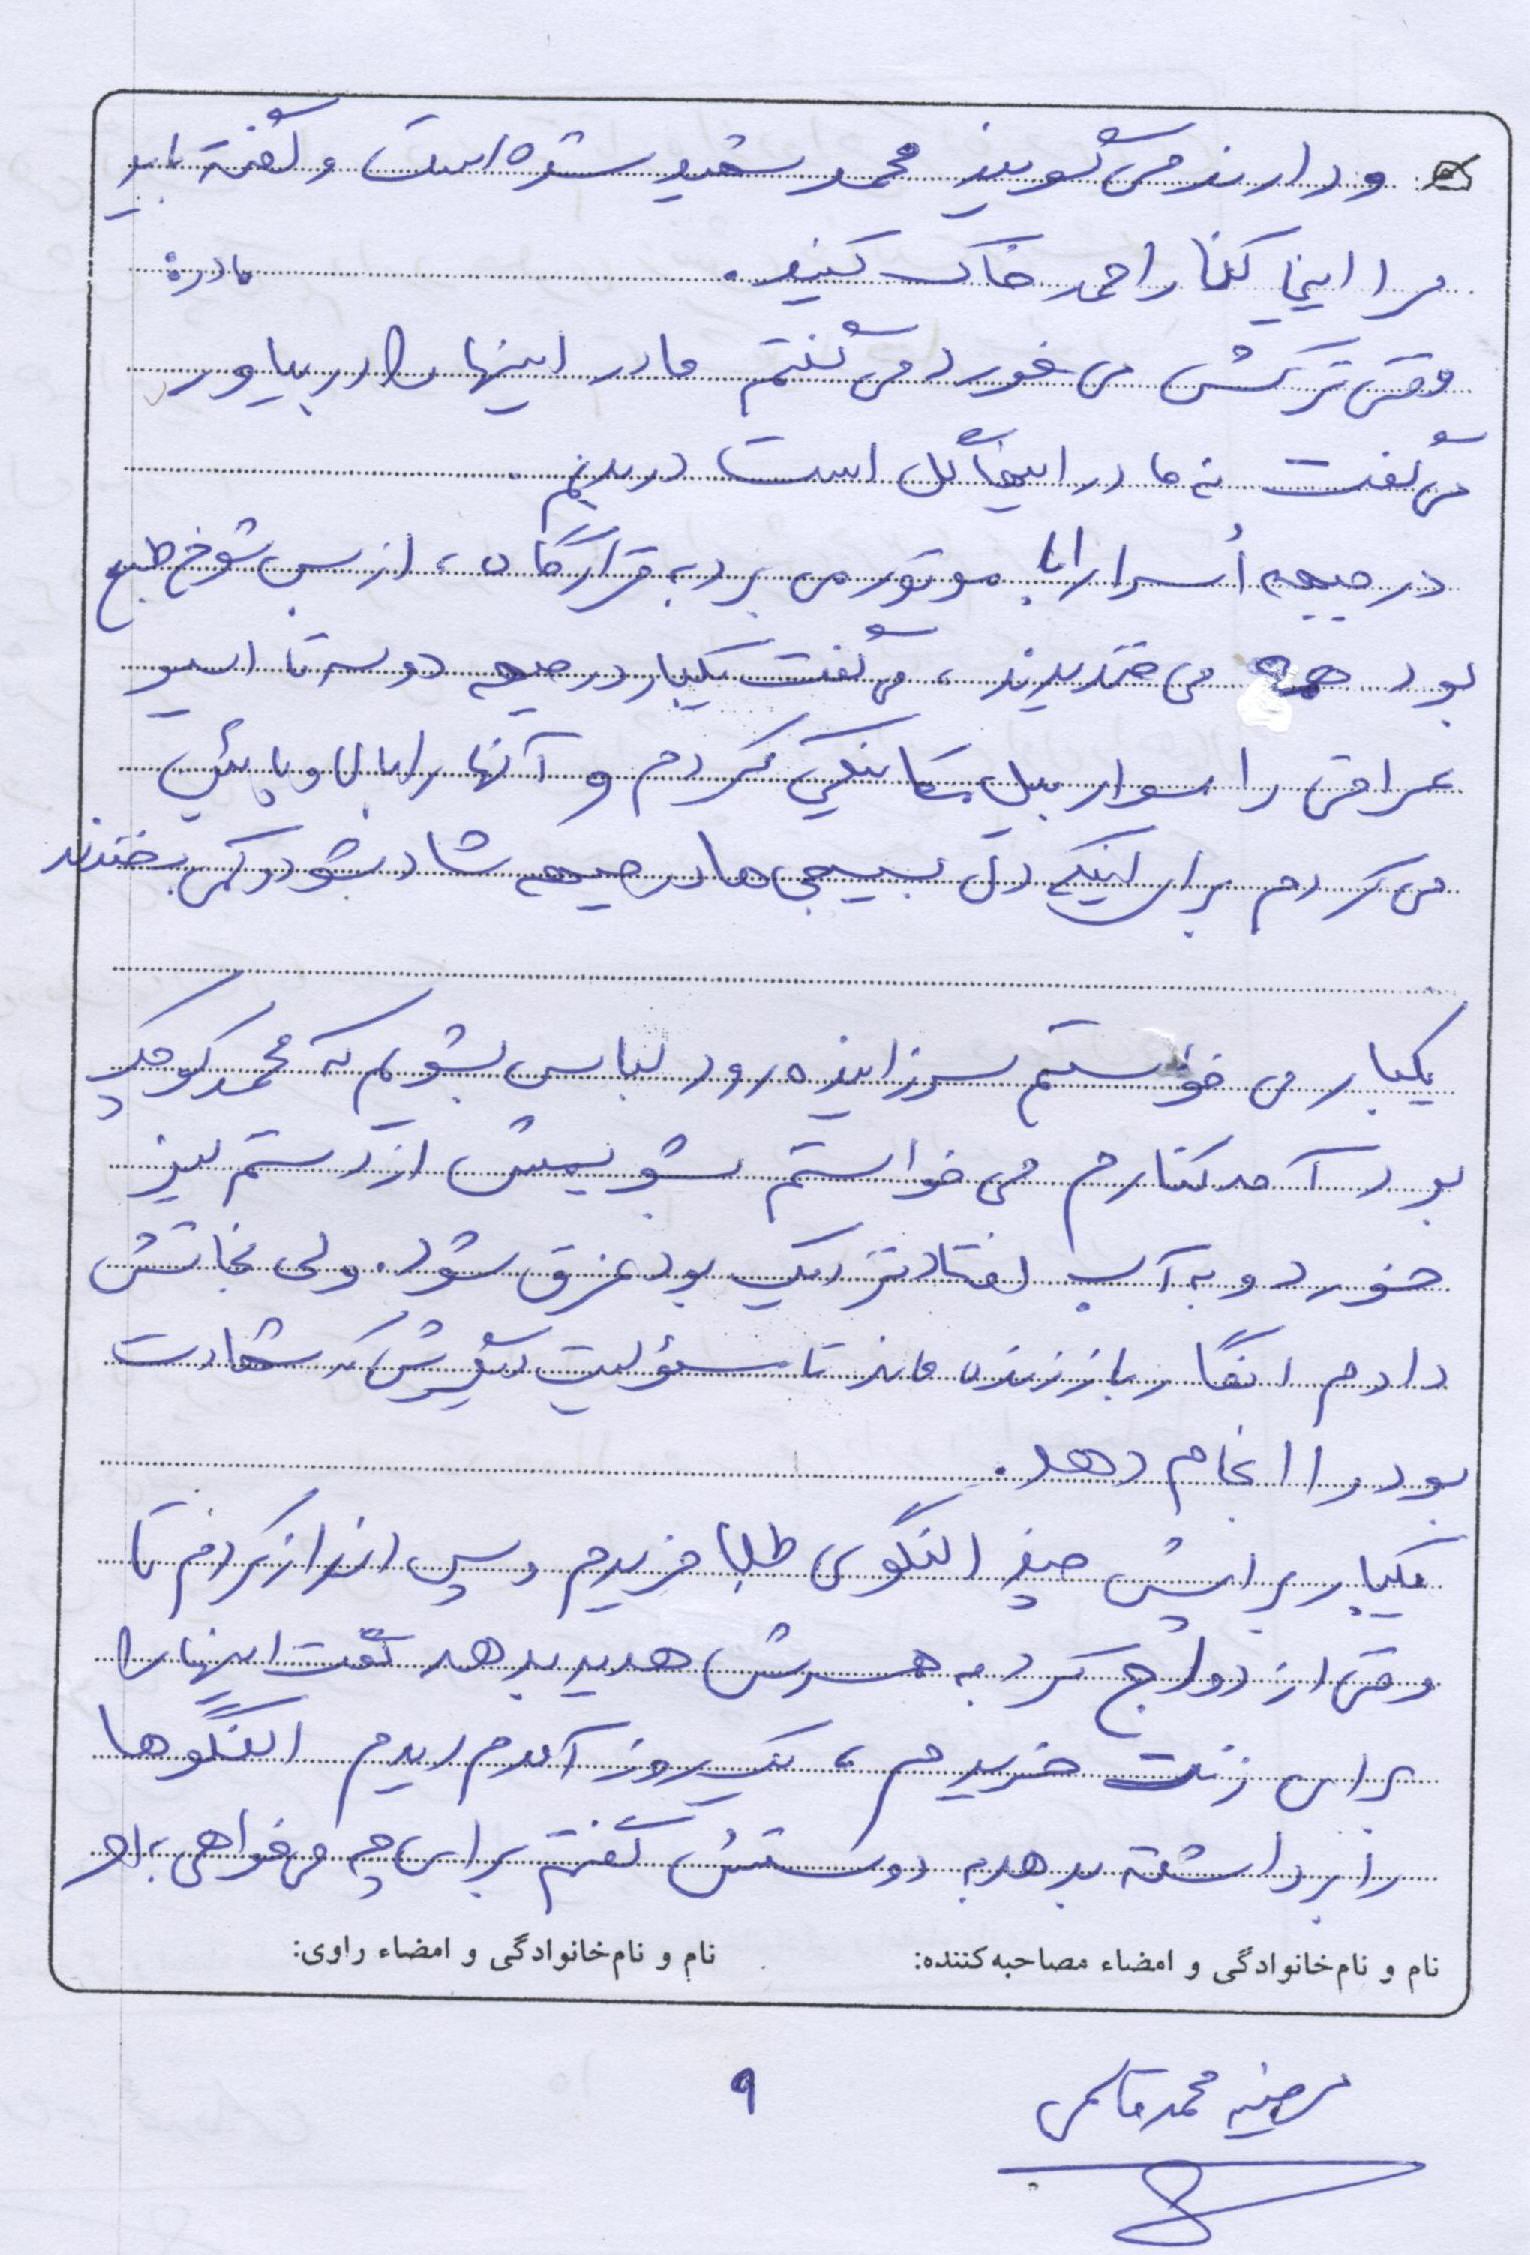 و دارند می گویند محمد شهید شده است و گفته باید
مرا اینجا کنار احمد خاک کنید. مادره
وقتی ترکش می خورد می گفتم مادر اینها را در بیاور
می گفت نه مادر اینها گل است در بدنم.
در جبهه اُسرا را با موتور می برد به قرارگاه، از بس شوخ طبع
بود همه می خندیدند، می گفت یکبار در جبهه دو سه تا اسیر
عراقی را سوار بیل مکانیکی کردم و آنها را بالا و پائین
می کردم برای اینکه دل بسیجی ها در جبهه شاد بشود و کمی بخندند
یکبار می خواستم سر زاینده رود لباس بشویم که محمد کوچک
بود آمد کنارم می خواستم بشویمش از دستم لیز
خورد و به آب افتاد نزدیک بود غرق شود. ولی نجاتش
دادم انگار باز زنده ماند تا مسؤلیت دیگرش که شهادت
بود را انجام دهد.
یکبار برایش چند النگوی طلا خریدم و پس انداز کردم تا
وقتی ازدواج کرد به همسرش هدیه بدهد گفتم اینها را
برای زنت خریدم، یک روز آمدم دیدم النگوها
را برداشته بدهد به دوستش گفتم برای چه می خواهی به او
نام و نام‌خانوادگی و امضاء مصاحبه‌کننده: نام و نام‌خانوادگی و امضاء راوی:
مرضیه محمدقاسمی
۹